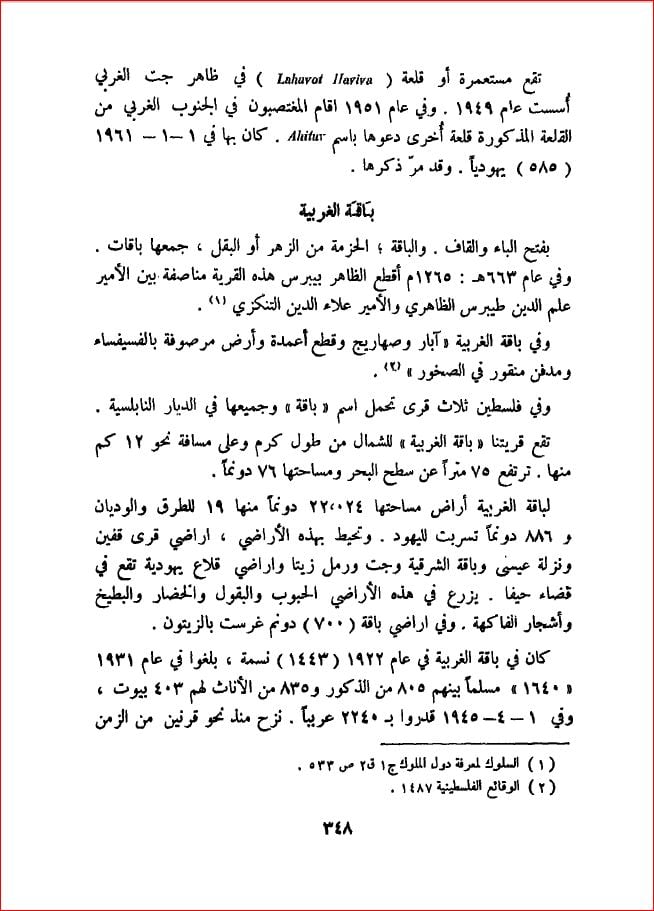 تقع مستعمرة أو قلعة ( Lahavot Haviva ) في ظاهر جت الغربي
أُسست عام ١٩٤٩ . وفي عام ١٩٥١ اقام المغتصبون في الجنوب الغربي من
القلعة المذكورة قلعة أُخرى دعوها باسم Ahitur . كان بها في ١ -١ - ١٩٦١
( ٥٨٥ ) يهودياً . وقد مرّ ذكرها .
باقة الغربية
بفتح الباء والقاف . والباقة ؛ الحزمة من الزهر أو البقل ، جمعها باقات .
وفي عام ٦٦٣هـ : ١٢٦٥م أقطع الظاهر بيبرس هذه القرية مناصفة بين الأمير
علم الدين طيبرس الظاهري والأمير علاء الدين التنكزي (١) .
وفي باقة الغربية «آبار وصهاريج وقطع أعمدة وأرض مرصوفة بالفسيفساء
ومدفن منقور في الصخور » (٢) .
وفي فلسطين ثلاث قرى تحمل اسم « باقة » وجميعها في الديار النابلسية .
تقع قريتنا « باقة الغربية » للشمال من طول كرم وعلى مسافة نحو ١٢ كم
منها . ترتفع ٧٥ متراً عن سطح البحر ومساحتها ٧٦ دونماً .
لباقة الغربية أراض مساحتها ٢٢،٠٢٤ دونماً منها ١٩ للطرق والوديان
و ٨٨٦ دونماً تسربت لليهود . وتحيط بهذه الأراضي ، اراضي قرى قفين
ونزلة عيسى وباقة الشرقية وجت ورمل زيتا واراضي قلاع يهودية تقع في
قضاء حيفا . يزرع في هذه الأراضي الحبوب والبقول والخضار والبطيخ
وأشجار الفاكهة . وفي اراضي باقة (٧٠٠) دونم غرست بالزيتون .
كان في باقة الغربية في عام ١٩٢٢ (١٤٤٣) نسمة ، بلغوا في عام ١٩٣١
« ١٦٤٠ » مسلماً بينهم ٨٠٥ من الذكور و٨٣٥ من الأناث لهم ٤٠٣ بيوت ،
وفي ١ - ٤ - ١٩٤٥ قدروا بـ ٢٢٤٠ عربياً . نزح منذ نحو قرنين من الزمن
(١) السلوك لمعرفة دول الملوك ج١ ق٢ ص ٥٣٣ .
(٢) الوقائع الفلسطينية ١٤٨٧ .
٣٤٨